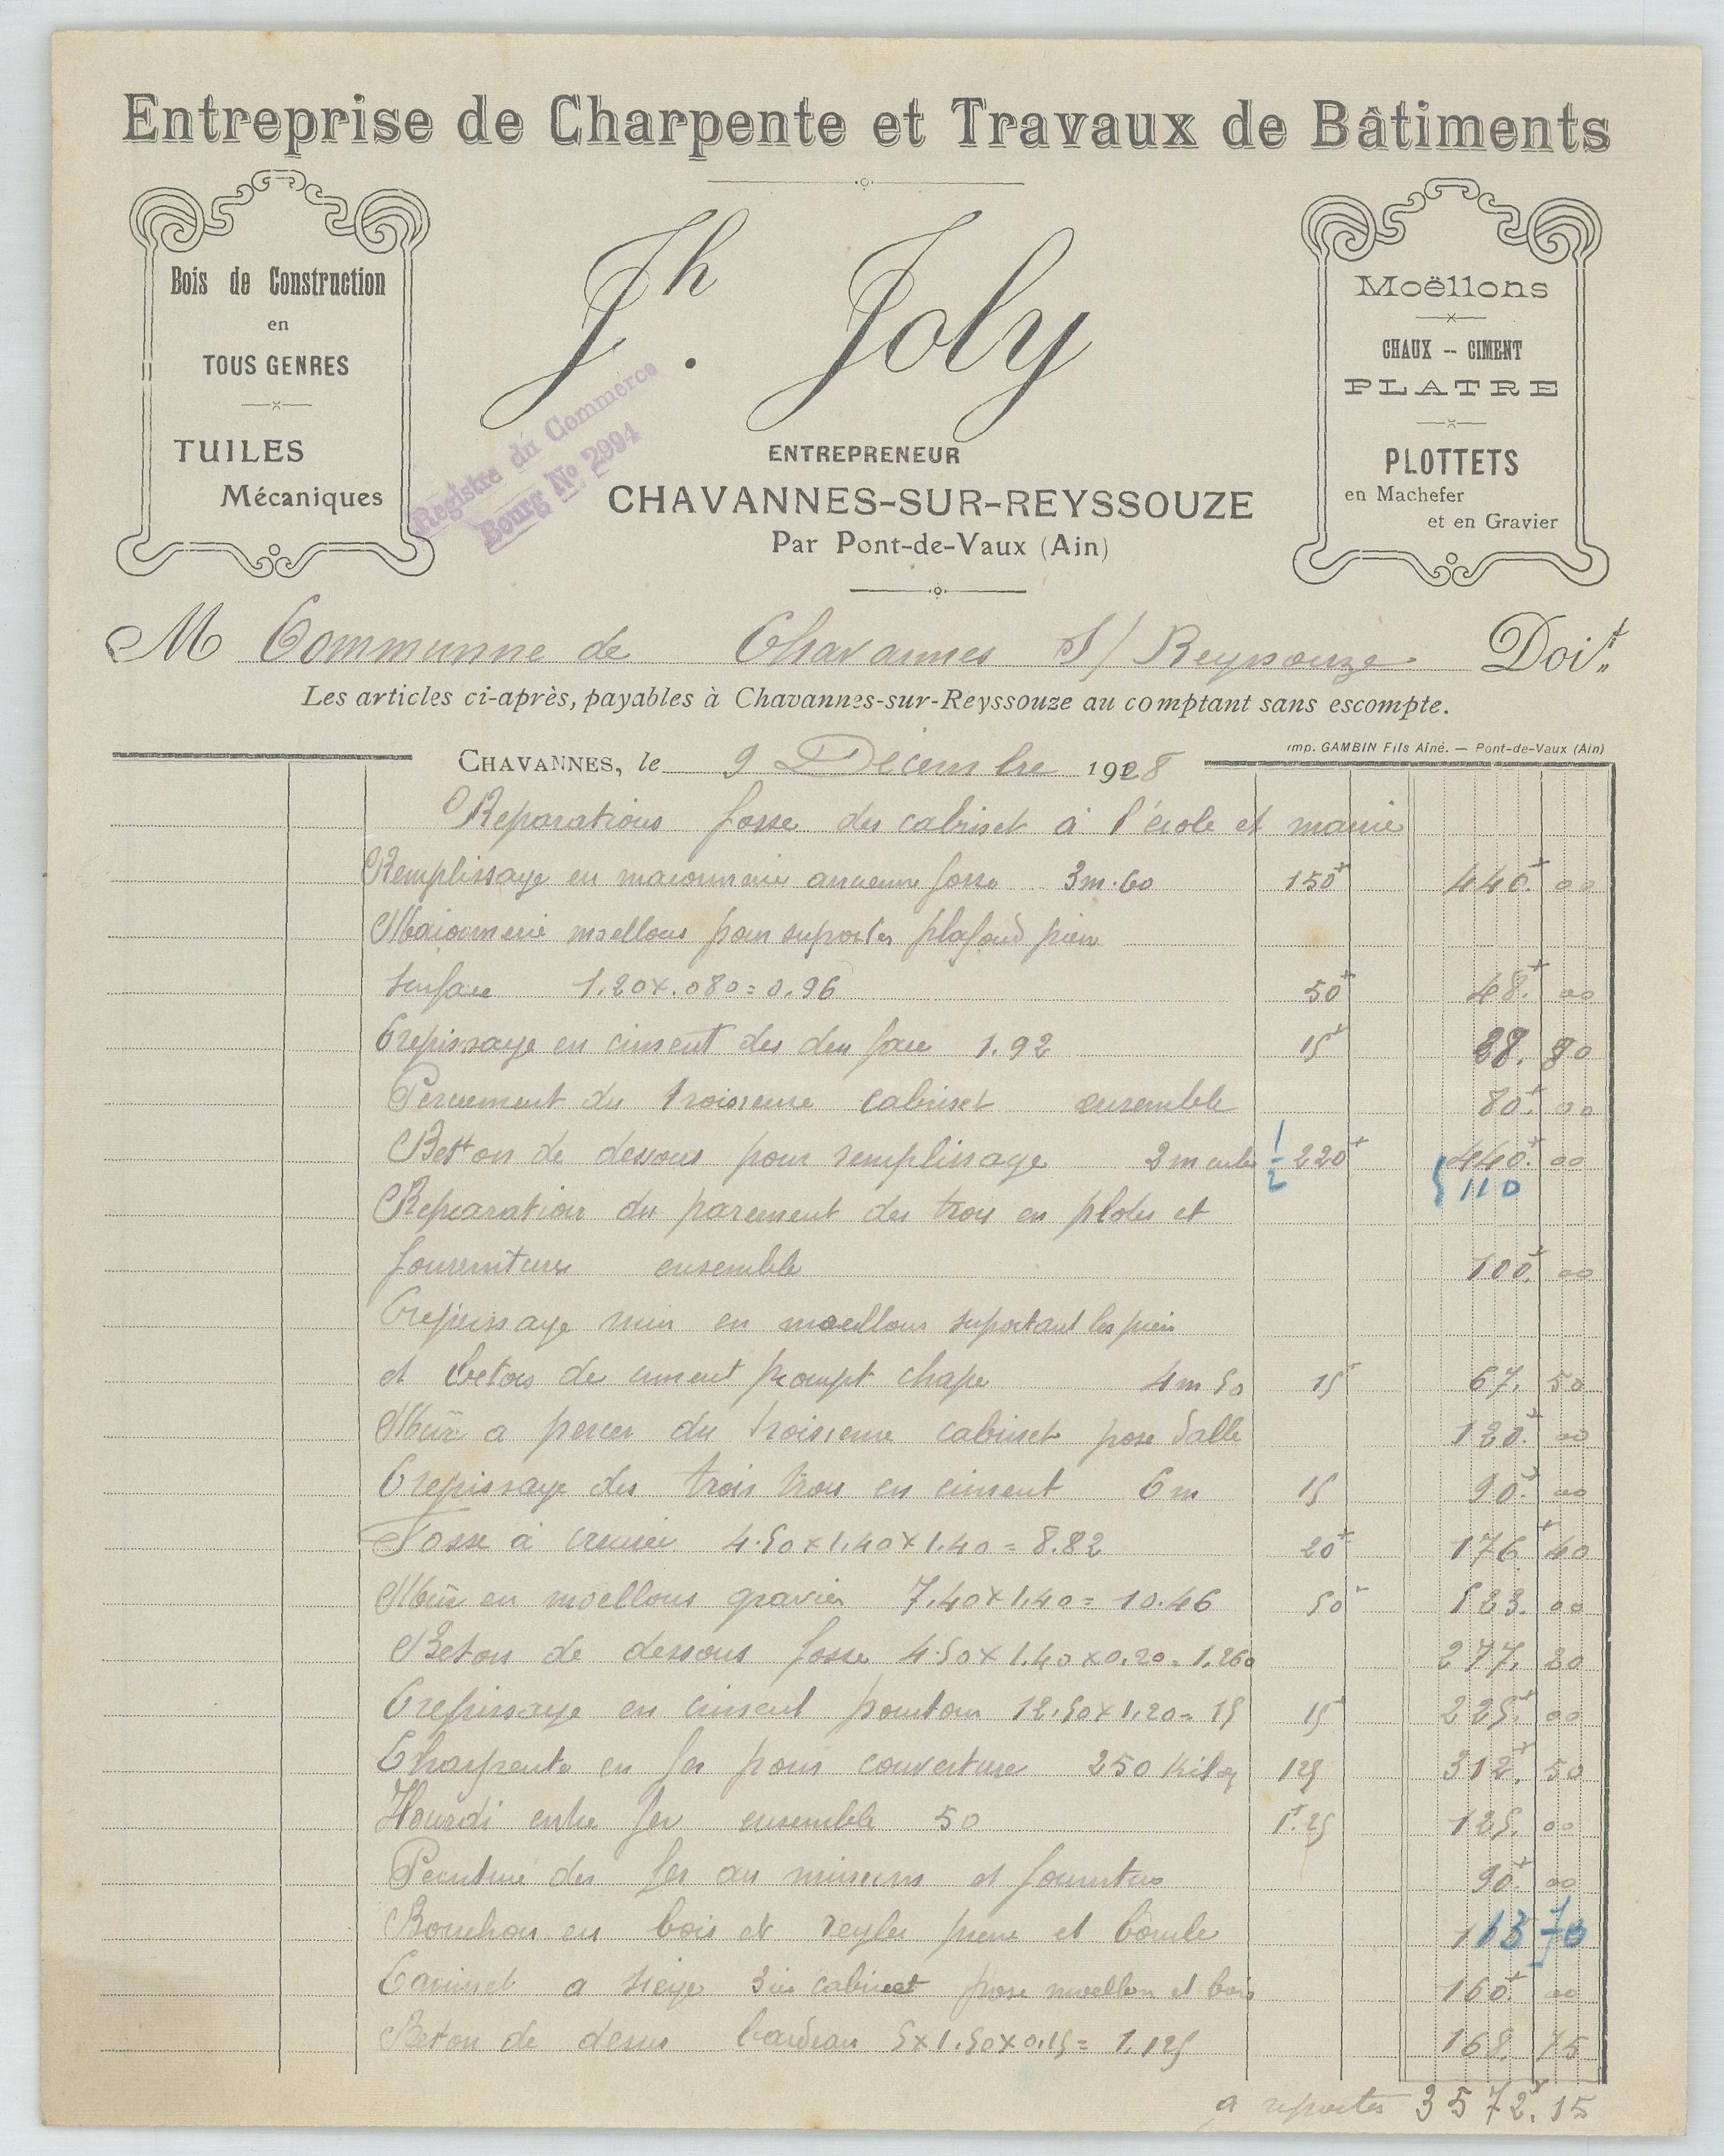 Entreprise de Charpente et Travaux de Bâtiments
Bois de Construction
en
TOUS GENRES
TUILES
Mécaniques
Jh. Joly
ENTREPRENEUR
CHAVANNES-SUR-REYSSOUZE
Par Pont-de-Vaux (Ain)
Registre du Commerce
Bourg No 2994
Moëllons
CHAUX -- CIMENT
PLATRE
PLOTTETS
en Machefer
et en Gravier
M Communne de Chavannes S/ Reyssouze Doit
Les articles ci-après, payables à Chavannes-sur-Reyssouze au comptant sans escompte.
Imp. GAMBIN Fils Aîné. — Pont-de-Vaux (Ain)
CHAVANNES, le 9 Décembre 1928
Reparations fosse des cabinet à l'école et mairie
Remplissage en maconnerie ancienne fosse 3m.60 150 440. 00
Maconnerie moellons pour suporter plafond
surface 1.20 x .080 = 0.96 50 48. 00
Crepissage en ciment des deu face 1.92 15 28. 80
Percement du troisieme cabinet ensemble 80. 00
Betton de dessous pour remplissage 2 m cube 1/2 220 440. 00
110
Reparation du parement des trou en plots et
fournitures ensemble 100. 00
Crepissage mur en moellons suportant les
et beton de ciment prompt chape 4m50 15 67. 50
Mur a percer du troisieme cabinet pose dalle 120. 00
Crepissage des trois trou en ciment 6m 15 90. 00
Fosse à creuser 4.50 x 1.40 x 1.40 = 8.82 20 176 40
Mur en moellons gravier 7.40 x 1.40 = 10.46 50 523. 00
Beton de dessous fosse 4.50 x 1.40 x 0.20 = 1.260 277. 20
Crepissage en ciment pourtour 12.50 x 1.20 = 15 15 225. 00
Charpente en fer pour couverture 250 Kilog 125 312. 50
Hourdi entre fer ensemble 50 1.25 125. 00
Peinture des fer au minium et fournitures 90. 00
Bouchon en bois et pierre et boucle 113 70
a siege 3ie cabinet pose moellon et bois 160. 00
Beton de dessus 5 x 1.50 x 0.15 = 1.125 168. 75
a reporter 3572. 15